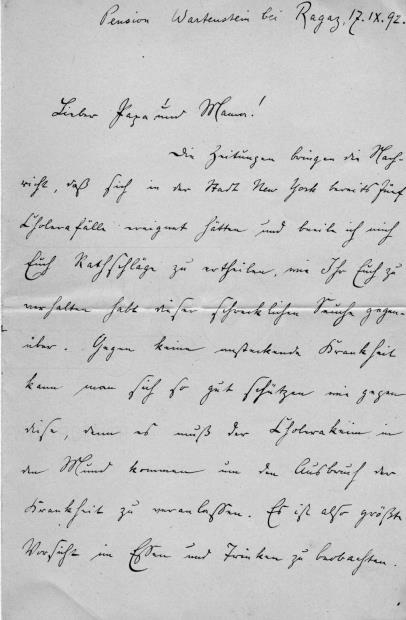 Pension Wartenstein bei Ragaz, 17.IX.92.
Lieber Papa und Mama!
Die Zeitungen bringen die Nach-
richt, daß sich in der Stadt New York bereits fünf
Cholerafälle ereignet hätten und beeile ich mich
Euch Rathschläge zu ertheilen, wie Ihr Euch zu
verhalten habt dieser schrecklichen Seuche gegen-
über. Gegen keine ansteckende Krankheit
kann man sich so gut schützen wie gegen
diese, denn es muß der Cholerakeim in
den Mund kommen um den Ausbruch der
Krankheit zu veranlassen. Es ist also größte
Vorsicht im Essen und Trinken zu beobachten.